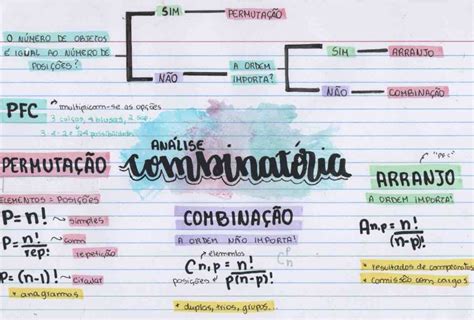 O NÚMERO DE OBJETOS
É IGUAL AO NÚMERO DE
POSIÇÕES?
SIM
PERMUTAÇÃO
NÃO
A ORDEM
IMPORTA?
SIM
ARRANJO
NÃO
COMBINAÇÃO
PFC
multiplicam-se as opções
3 calças, 4 blusas, 2 sap.
3 · 4 · 2 = 24 possibilidades
ANÁLISE
combinatória
PERMUTAÇÃO
ELEMENTOS = POSIÇÕES
P = n! simples
P = n!/rep! com
repetição
P = (n-1)! circular
* anagramas
COMBINAÇÃO
A ORDEM NÃO IMPORTA!
elementos
Cn,p = n!/p!(n-p)!
posições
* duplas, trios, grupos...
"PFC"
ARRANJO
A ORDEM IMPORTA!
An,p = n!/(n-p)!
* resultados de campeonatos
* comissão com cargos